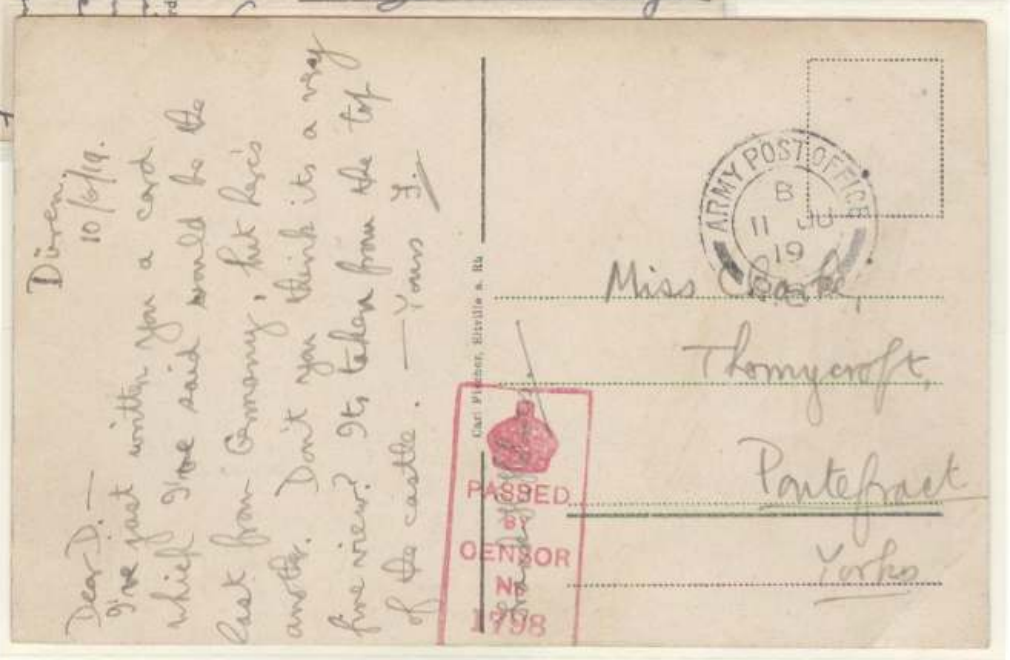 Düren,
10/6/19.
Dear D. —
I've just written you a card
which I've said would be the
last from Germany, but here's
another. Don't you think its a very
fine view? Its taken from the top
of the castle. — Yours F.
Carl Fischer, Eltville a. Rh
ARMY POST OFFICE
B
11 JU
19
Miss Clarke,
Thornycroft,
Pontefract
Yorks
PASSED
BY
CENSOR
No
1798